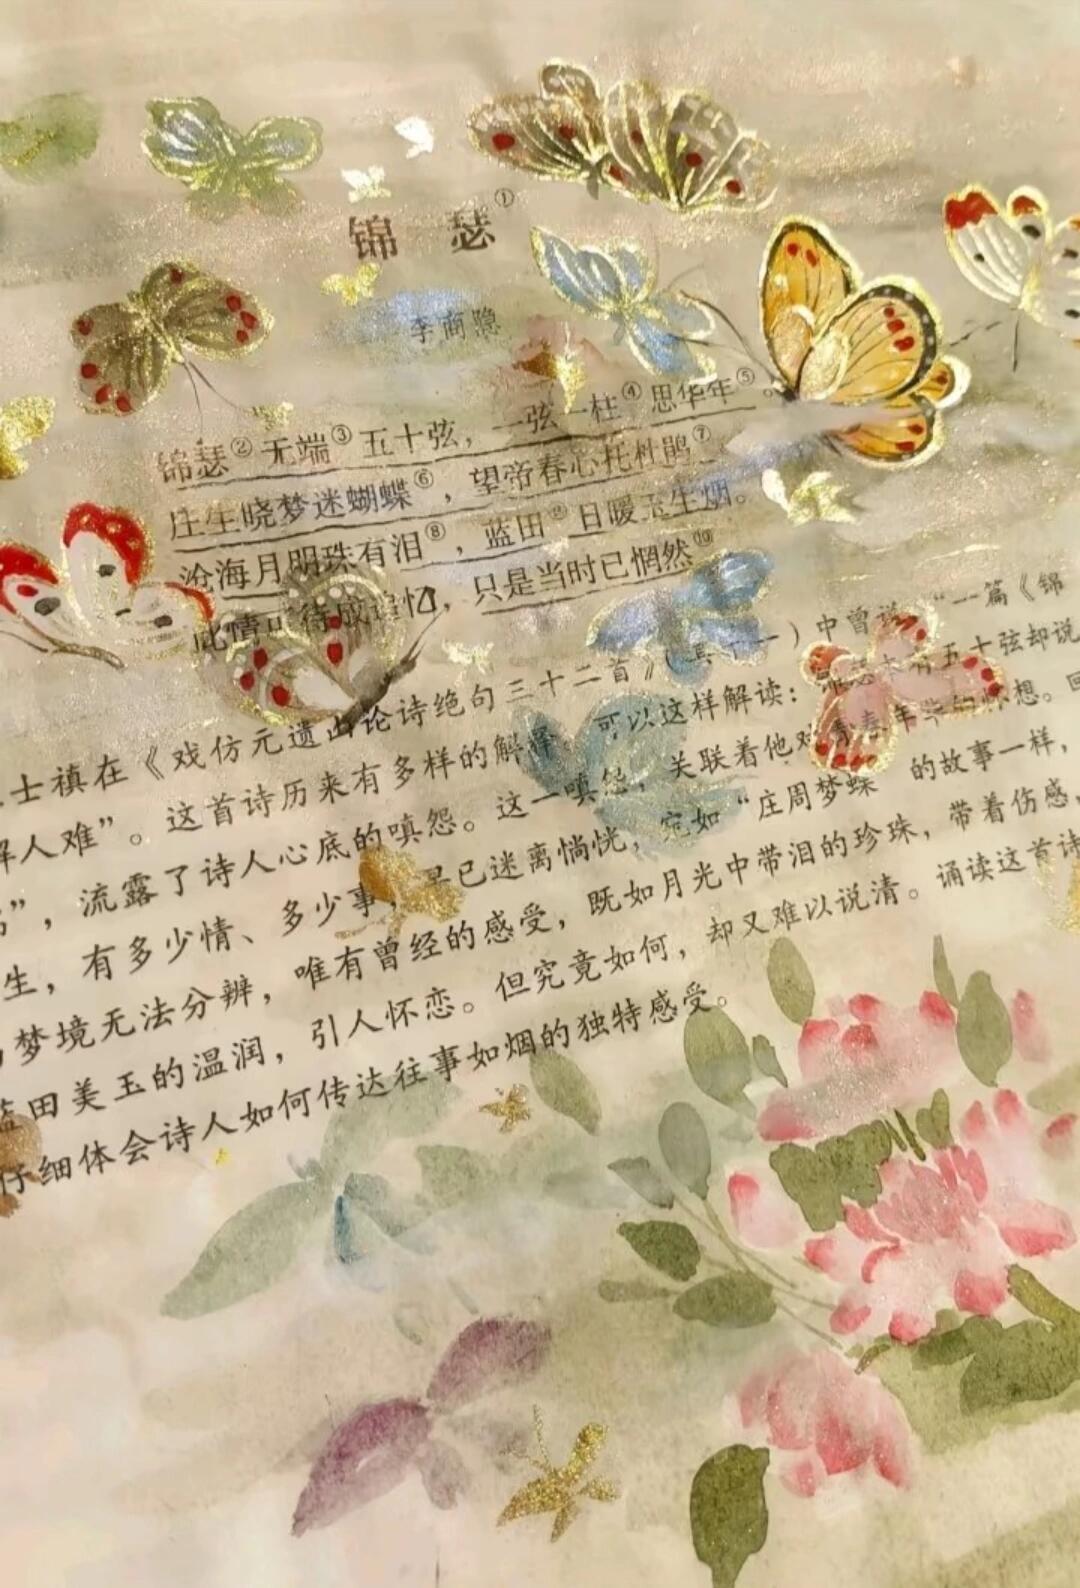 锦 瑟①
李商隐
锦瑟②无端③五十弦，一弦一柱④思华年⑤。
庄生晓梦迷蝴蝶⑥，望帝春心托杜鹃⑦
沧海月明珠有泪⑧，蓝田⑨日暖玉生烟。
此情可待成追忆，只是当时已惘然⑩
士禛在《戏仿元遗山论诗绝句三十二首》（其十一）中曾说：“一篇《锦
解人难”。这首诗历来有多样的解释，可以这样解读：五十弦却说
”，流露了诗人心底的嗔怨。这一嗔怨，关联着他对青春年华的怀想。回
生，有多少情、多少事，早已迷离惝恍，宛如“庄周梦蝶”的故事一样，
梦境无法分辨，唯有曾经的感受，既如月光中带泪的珍珠，带着伤感，
蓝田美玉的温润，引人怀恋。但究竟如何，却又难以说清。诵读这首诗
仔细体会诗人如何传达往事如烟的独特感受。